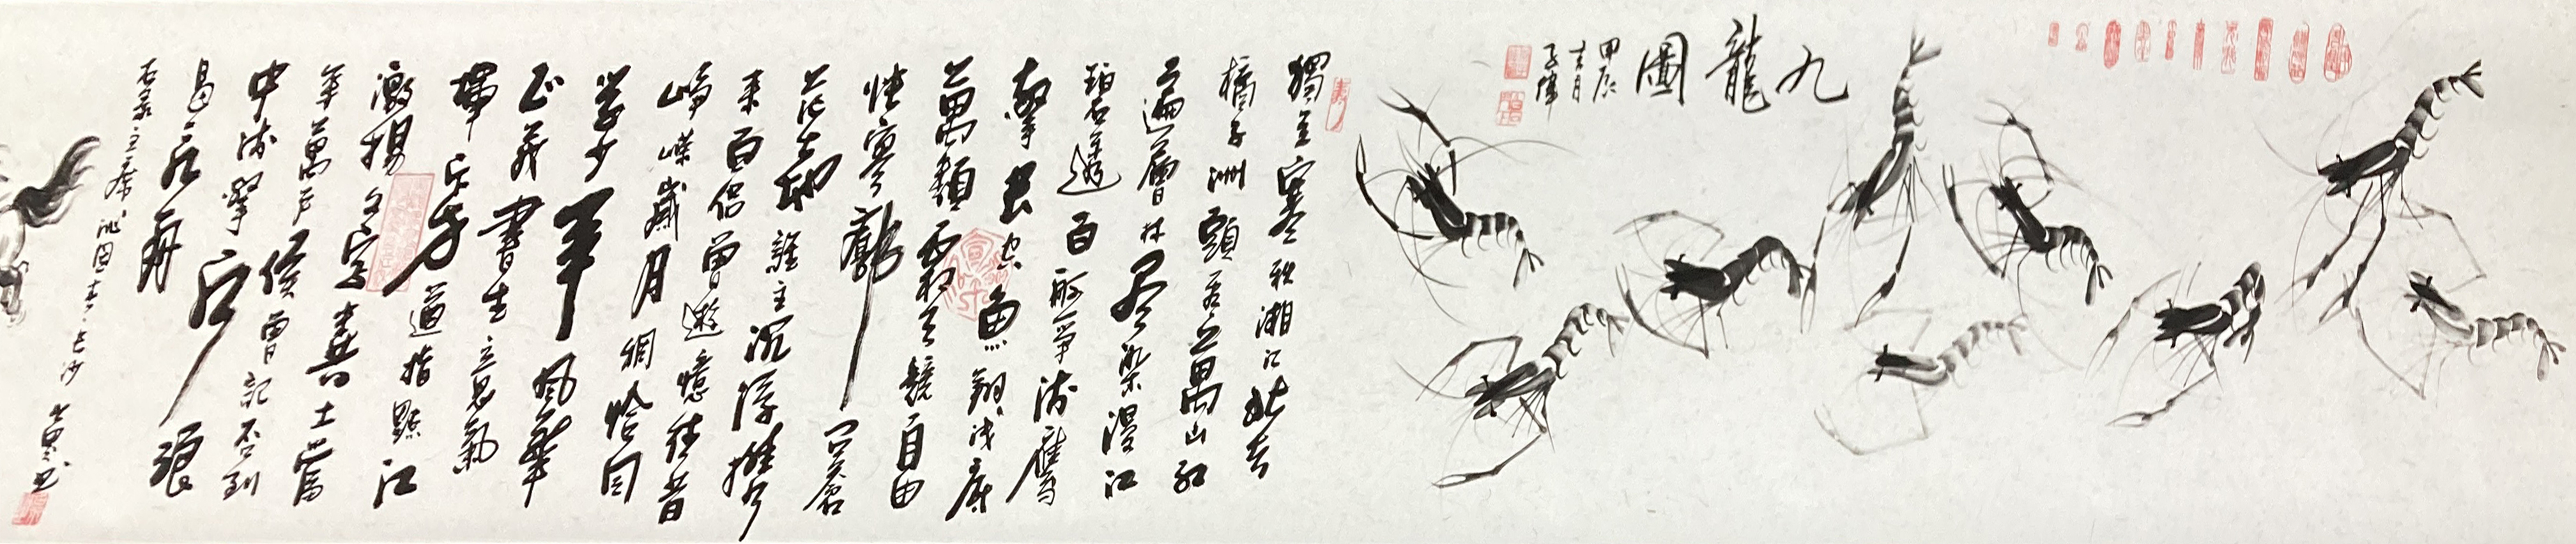 九龍圖
甲辰
獨立寒秋湘江北去
橘子洲頭看萬山紅
遍層林盡染漫江
碧透百舸爭流鷹
擊長空魚翔淺底
萬類霜天競自由
悵寥廓問蒼
茫大地誰主沉浮攜
來百侶曾遊憶往昔
崢嶸歲月稠恰同
學少年風華
正茂書生意氣
揮斥方遒指點江
激揚文字糞土當
年萬戶侯曾記否到
中流擊水浪
遏飛舟
右录主席沁園春長沙